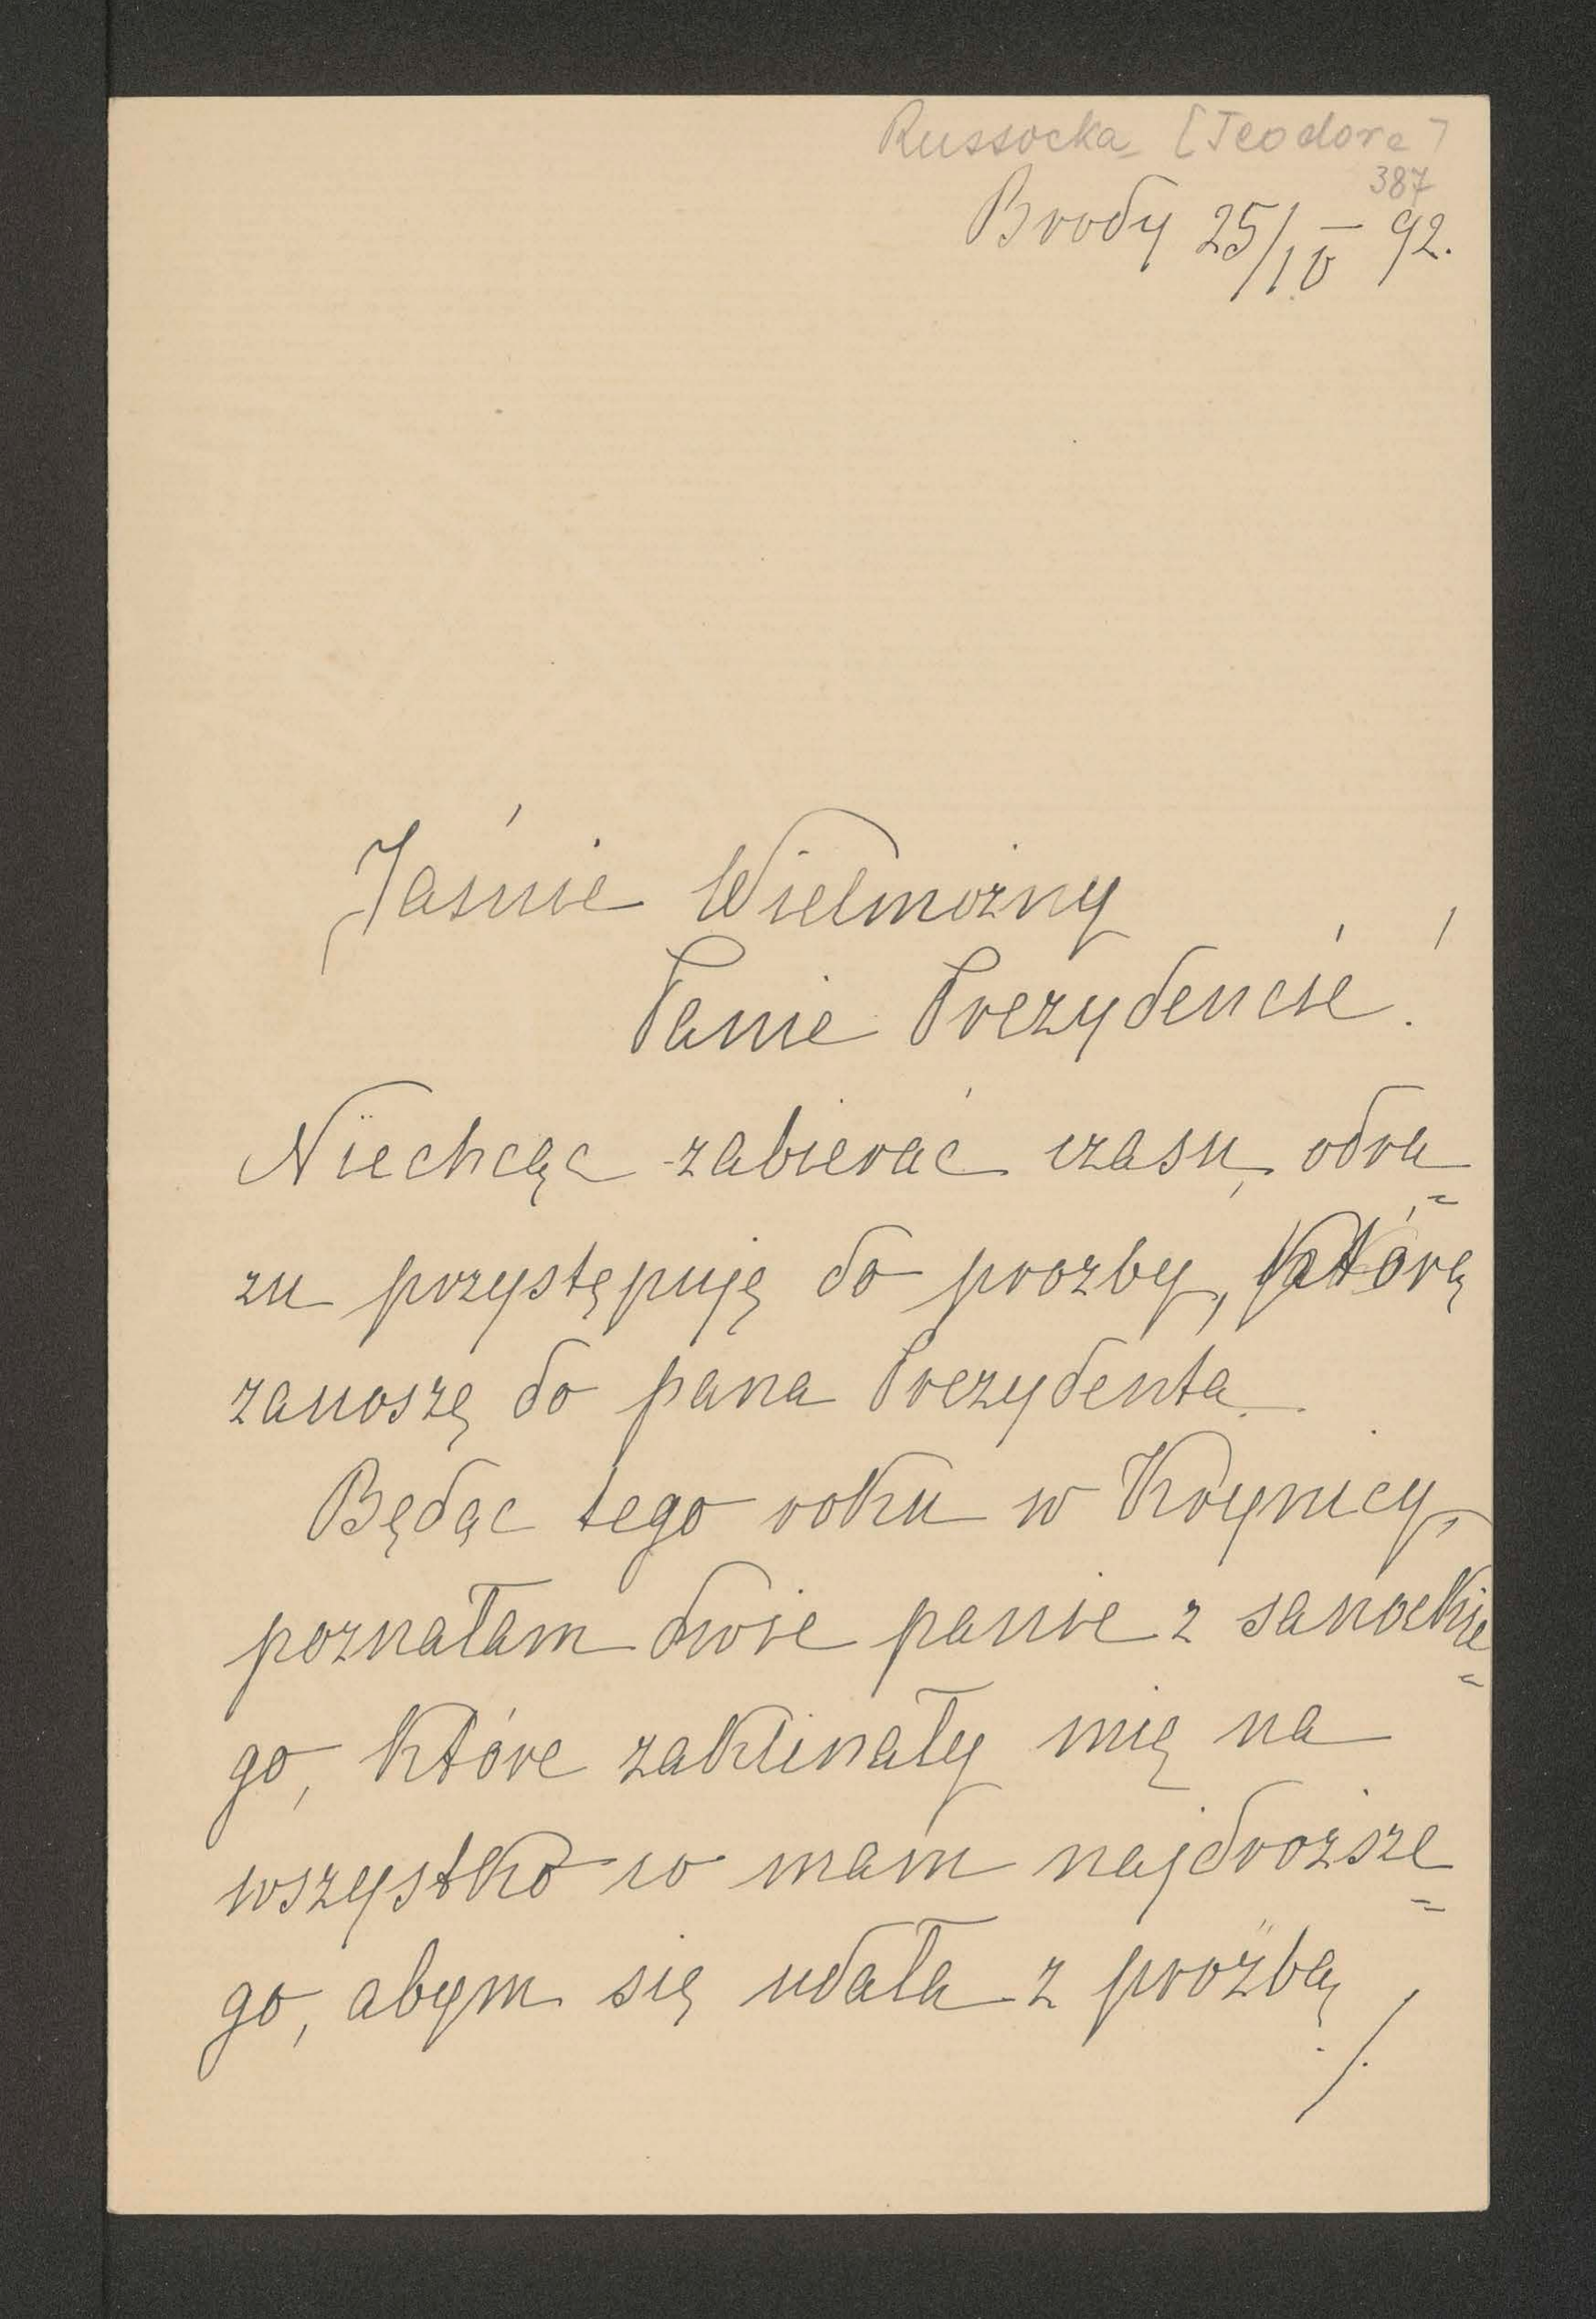 Russocka [Teodora]
387
Brody 25/10 – 92.
Jaśnie Wielmożny
Panie Prezydencie!
Niechcąc zabierać czasu, odra=
zu przystępuję do prozby, którą
zanoszę do pana Prezydenta.
Będąc tego roku w Krynicy,
poznałam dwie panie z sanockie=
go, które zaklinały mię na
wszystko co mam najdroższe=
go, abym się udała z proźbą
./.